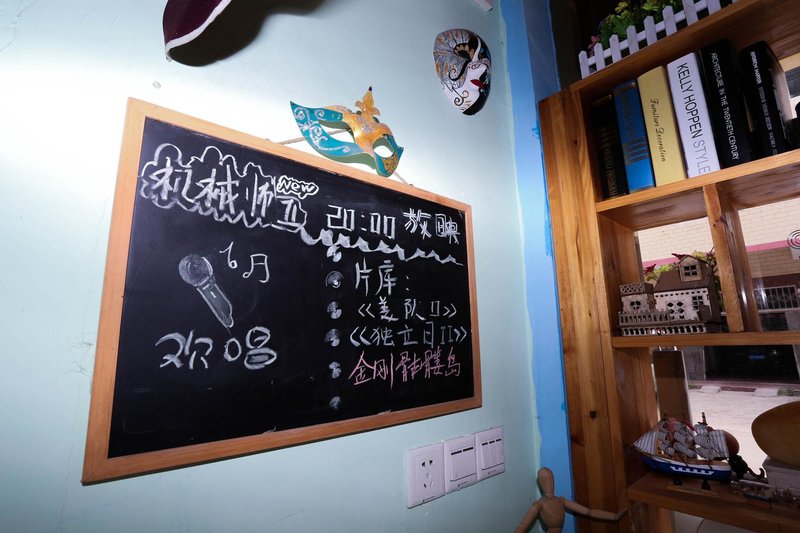 机械师II New 20:00 放映
6月
欢唱
片库:
《美队II》
《独立日II》
金刚骷髅岛
Furniture Decoration
KELLY HOPPEN STYLE
ARCHITECTURE IN THE TWENTIETH CENTURY